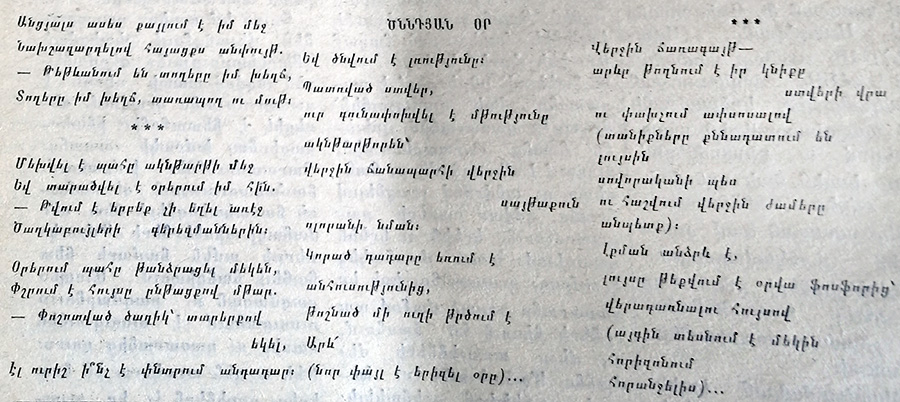 Անցյալս ասես քայլում է իմ մեջ
Նախշազարդելով հայացքս անփույթ.
— Թեթևանում են տողերը իմ խեղճ,
Տողերը իմ խեղճ, տառապող ու մութ։
* * *
Մեխվել է պահը ակնթարթի մեջ
Եվ տարածվել է օրերում իմ հին.
— Թվում է երբեք չի եղել առէջ
Ծաղկաբույլերի գերեզմաններին։
Օրերում պահը թանձրացել մեկեն,
Փշրում է Հույսը ընթացքով մթար.
— Փոշոտված ծաղիկ՝ տարերքով
եկել,
էլ ուրիշ ի՞նչ է փնտրում անդադար։
ԾՆՆԴՅԱՆ ՕՐ
Եվ ծնվում է լռությունը։
Պատռված ստվեր,
ուր գունափոխվել է մթությունը
ակնթարթորեն՝
վերջին ճանապարհի վերջին
սայթաքուն
ոլորանի նման։
Կորած դադարը եռում է
անհուսությունից,
Թոշնած մի ուղի թրծում է
Արև՝
(նոր փայլ է երիզել օրը)...
* * *
Վերջին ճառագայթ—
արևը թողնում է իր կնիքը
ստվերի վրա
ու փախչում ափսոսալով
(տանիքները քննադատում են
լույսին
սովորականի պես
ու հաշվում վերջին ժամերը
անպետք)։
Լքման անձրև է,
լույսը թեքվում է օրվա ֆոսֆորից՝
վերադառնալու հույսով
(այգին տեսնում է մեկին
հորիզոնում
հորանջելիս)...